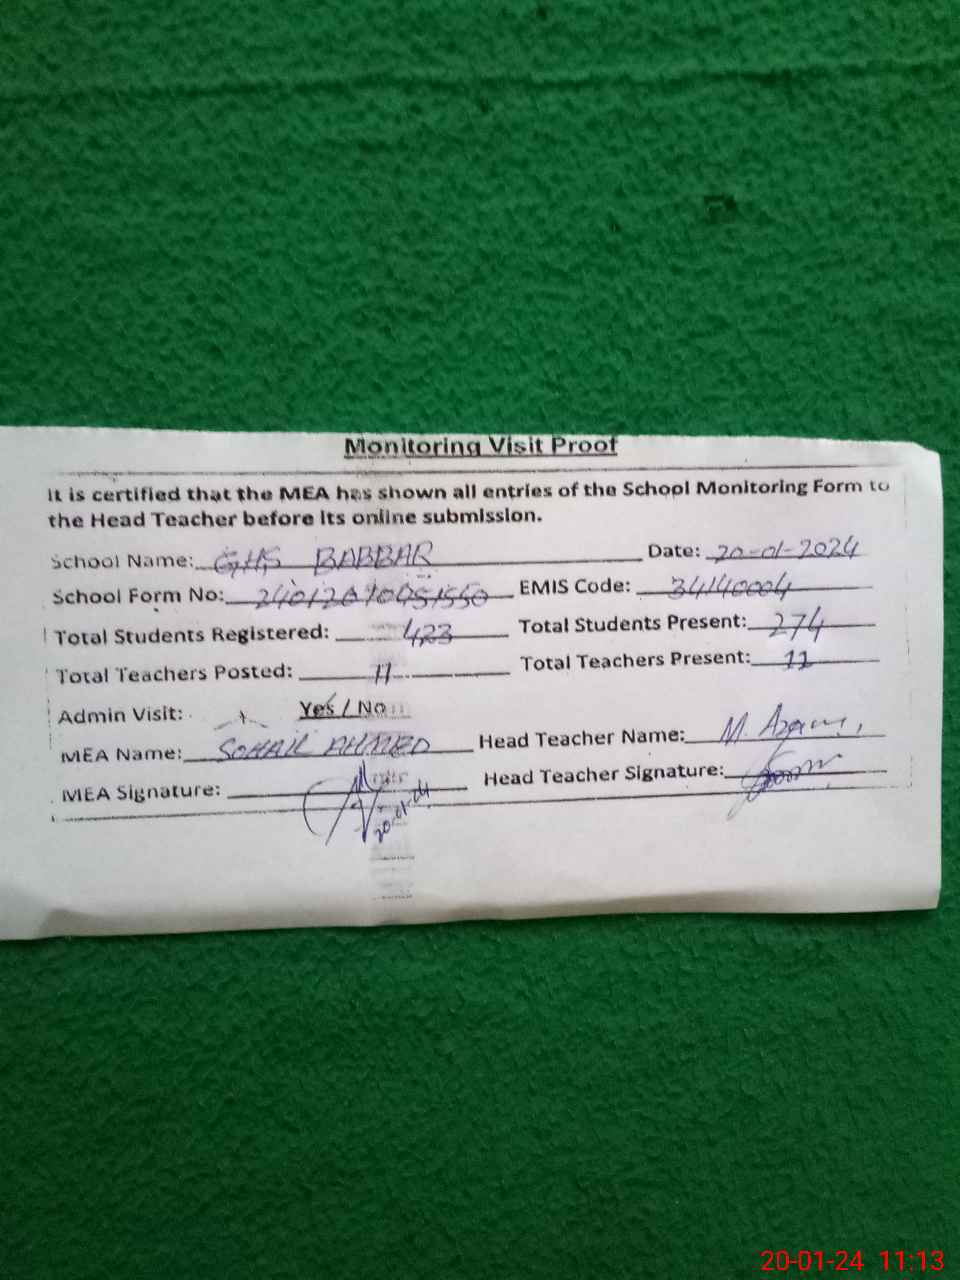 Monitoring Visit Proof
It is certified that the MEA has shown all entries of the School Monitoring Form to
the Head Teacher before its online submission.
School Name: GHS BABBAR Date: 20-01-2024
School Form No: 24012010451550 EMIS Code: 34140004
Total Students Registered: 423 Total Students Present: 274
Total Teachers Posted: 11 Total Teachers Present: 11
Admin Visit: Yes / No
MEA Name: SOHAIL AHMED Head Teacher Name: M. Azam
MEA Signature: Head Teacher Signature:
20-01-24 11:13